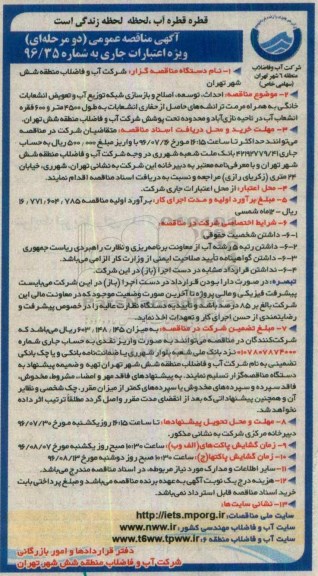 قطره قطره آب، لحظه لحظه زندگی است
آگهی مناقصه عمومی (دو مرحله‌ای)
ویژه اعتبارات جاری به شماره ۹۶/۳۵
شرکت آب و فاضلاب
منطقه ۶ شهر تهران
(سهامی خاص)
۱- نام دستگاه مناقصه گزار: شرکت آب و فاضلاب منطقه شش
شهر تهران
۲- موضوع مناقصه: احداث، توسعه، اصلاح و بازسازی شبکه توزیع آب و تعویض انشعابات
خانگی به همراه مرمت ترانشه‌های حاصل از حفاری انشعابات به طول ۲۵۰۰ متر و ۶۰۰ فقره
انشعاب آب در ناحیه نازی‌آباد و محدوده تحت پوشش شرکت آب و فاضلاب منطقه شش تهران.
۳- مهلت خرید و محل دریافت اسناد مناقصه: متقاضیان شرکت در مناقصه
می‌توانند حداکثر تا ساعت ۱۶:۱۵ مورخ ۹۶/۰۷/۱۶ با واریز مبلغ ۵۰۰٫۰۰۰ ریال به حساب
بانک ملت شعبه شهرری در وجه شرکت آب و فاضلاب منطقه شش
شهر تهران و با معرفی‌نامه معتبر به دبیرخانه این شرکت به نشانی تهران، شهرری، خیابان
۲۴ متری (زکریای رازی) مراجعه و نسبت به دریافت اسناد مناقصه اقدام نمایند.
۴- محل اعتبار: از محل اعتبارات جاری شرکت.
۵- مبلغ برآورد اولیه و مدت اجرای کار: برآورد اولیه مناقصه ۱۶٫۷۷۱٫۶۰۲٫۷۸۵
ریال - ۱۲ماه شمسی
۶- شرایط اختصاصی شرکت در مناقصه:
۶-۱- داشتن شخصیت حقوقی
۶-۲- داشتن رتبه ۵ رشته آب از معاونت برنامه‌ریزی و نظارت راهبردی ریاست جمهوری
۶-۳- داشتن گواهینامه تأیید صلاحیت ایمنی از وزارت کار الزامی می‌باشد.
۶-۴- نداشتن قرارداد مشابه در دست اجرا (باز) در این شرکت.
تبصره: در صورت دارا بودن قرارداد در دست اجرا (باز) در این شرکت می‌بایست
پیشرفت فیزیکی و مالی پروژه تا آخرین صورت وضعیت موجود که در معاونت مالی این
شرکت بالغ بر ۸۵ درصد باشد و تأییدیه دستگاه نظارت عالیه را در خصوص پیشرفت و
رضایتمندی از حسن اجرای کار و تعهدات اخذ نماید.
۷- مبلغ تضمین شرکت در مناقصه: به میزان ریال می‌باشد که
شرکت‌کنندگان در مناقصه می‌توانند به صورت واریز نقدی به حساب جاری شماره
۰۱۰۷۸۰۷۸۷۴۰۰۰ نزد بانک ملی شعبه بلوار شهرری یا ضمانت‌نامه بانکی و یا چک بانکی
تضمینی به نام شرکت آب و فاضلاب منطقه شش شهر تهران تهیه و ضمیمه پیشنهاد به
دستگاه مناقصه‌گزار تسلیم نمایند. به پیشنهادهای فاقد مهر و امضاء، مشروط، مخدوش،
فاقد سپرده و سپرده‌های مخدوش یا سپرده‌های کمتر از میزان مقرر، چک شخصی و نظایر
آن و همچنین پیشنهاداتی که بعد از انقضای مدت مقرر واصل گردد مطلقاً ترتیب اثر داده
نخواهد شد.
۸- مهلت و محل تحویل پیشنهادها: تا ساعت ۱۶:۱۵ روز یکشنبه مورخ ۹۶/۰۷/۳۰
دبیرخانه مرکزی شرکت به نشانی مذکور.
۹- زمان گشایش پاکت‌های (الف و ب): ساعت ۱۰:۳۰ صبح روز یکشنبه مورخ ۹۶/۰۸/۰۷
۱۰- زمان گشایش پاکتها(ج): ساعت ۱۰:۳۰ صبح روز دوشنبه مورخ ۹۶/۰۸/۱۳
۱۱- سایر اطلاعات و مدارک مورد نیاز مربوطه، در اسناد مناقصه مندرج می‌باشد.
۱۲- هزینه درج یک نوبت آگهی به عهده برنده مناقصه می‌باشد و مبلغ پرداختی بابت
خرید اسناد مناقصه قابل استرداد نمی‌باشد.
۱۳- نشانی سایت‌ها:
سایت ملی مناقصات: http://iets.mporg.ir
سایت آب و فاضلاب مهندسی کشور: www.nww.ir
سایت آب و فاضلاب منطقه ۶: www.t6ww.tpww.ir
دفتر قراردادها و امور بازرگانی
شرکت آب و فاضلاب منطقه شش شهر تهران